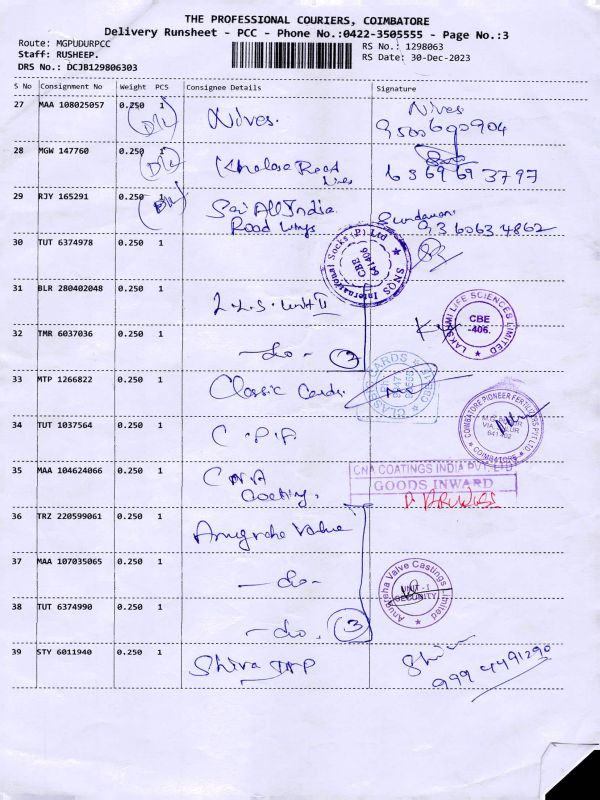 THE PROFESSIONAL COURIERS, COIMBATORE
Delivery Runsheet - PCC - Phone No.:0422-3505555 - Page No.:3
Route: MGPUDURPCC
Staff: RUSHEEP.
DRS No.: DCJB129806303
RS No.: 1298063
RS Date: 30-Dec-2023
S No Consignment No Weight PCS Consignee Details Signature
27 MAA 108025057 0.250 1 Nives. Nives
9500690904
28 MGW 147760 0.250 1 Road
6369693797
29 RJY 165291 0.250 1 Sai All India
Road
9360634862
30 TUT 6374978 0.250 1
SNQS International Socks (P) Ltd
CBE
641406
31 BLR 280402048 0.250 1 L.L.S. Unit II
LAKSHMI LIFE SCIENCES LIMITED
CBE
-406.
32 TMR 6037036 0.250 1 -do- 3
33 MTP 1266822 0.250 1 Classic Cards.
CLASSIC CARDS
34 TUT 1037564 0.250 1 C.P.F
COIMBATORE PIONEER FERTILIZERS PVT LTD
641402
COIMBATORE
35 MAA 104624066 0.250 1 CNA
Coating,
CNA COATINGS INDIA PVT. LTD
GOODS INWARD
36 TRZ 220599061 0.250 1 Anugraha Valve
37 MAA 107035065 0.250 1 -do-
Anugraha Valve Castings Limited
UNIT-I
SECURITY
38 TUT 6374990 0.250 1 -do. 3
39 STY 6011940 0.250 1 Shiva
9994491290